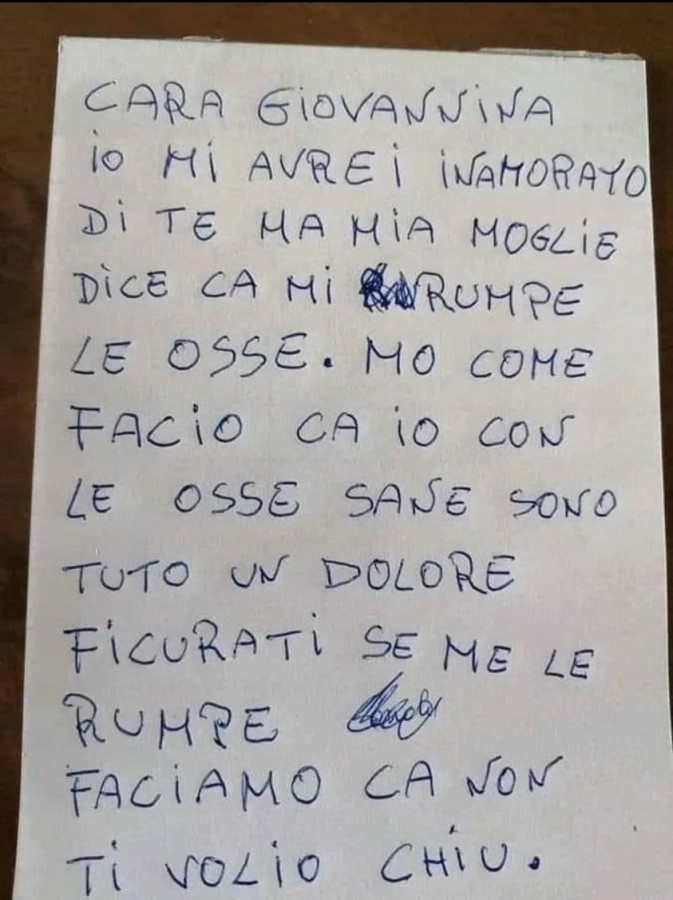 CARA GIOVANNINA
IO MI AVREI INAMORATO
DI TE MA MIA MOGLIE
DICE CA MI RUMPE
LE OSSE. MO COME
FACIO CA IO CON
LE OSSE SANE SONO
TUTO UN DOLORE
FICURATI SE ME LE
RUMPE
FACIAMO CA NON
TI VOLIO CHIU.